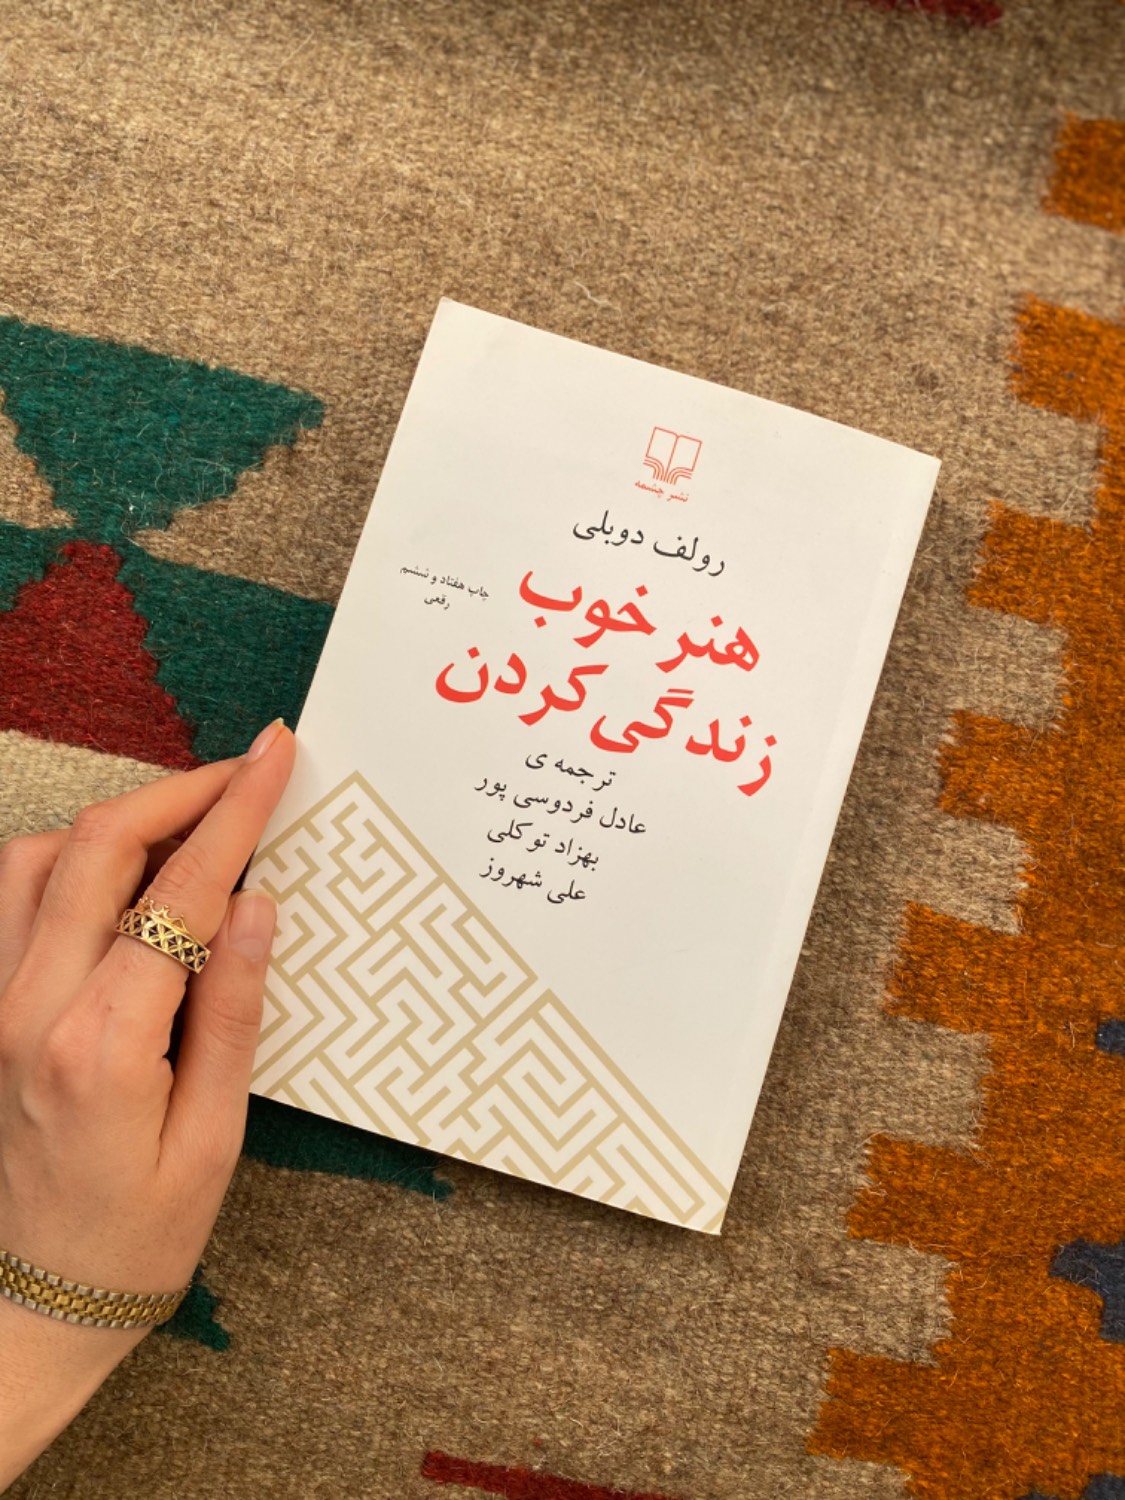 نشر چشمه
رولف دوبلی
هنر خوب
زندگی کردن
چاپ هفتاد و ششم
رقعی
ترجمه ی
عادل فردوسی پور
بهزاد توکلی
علی شهروز